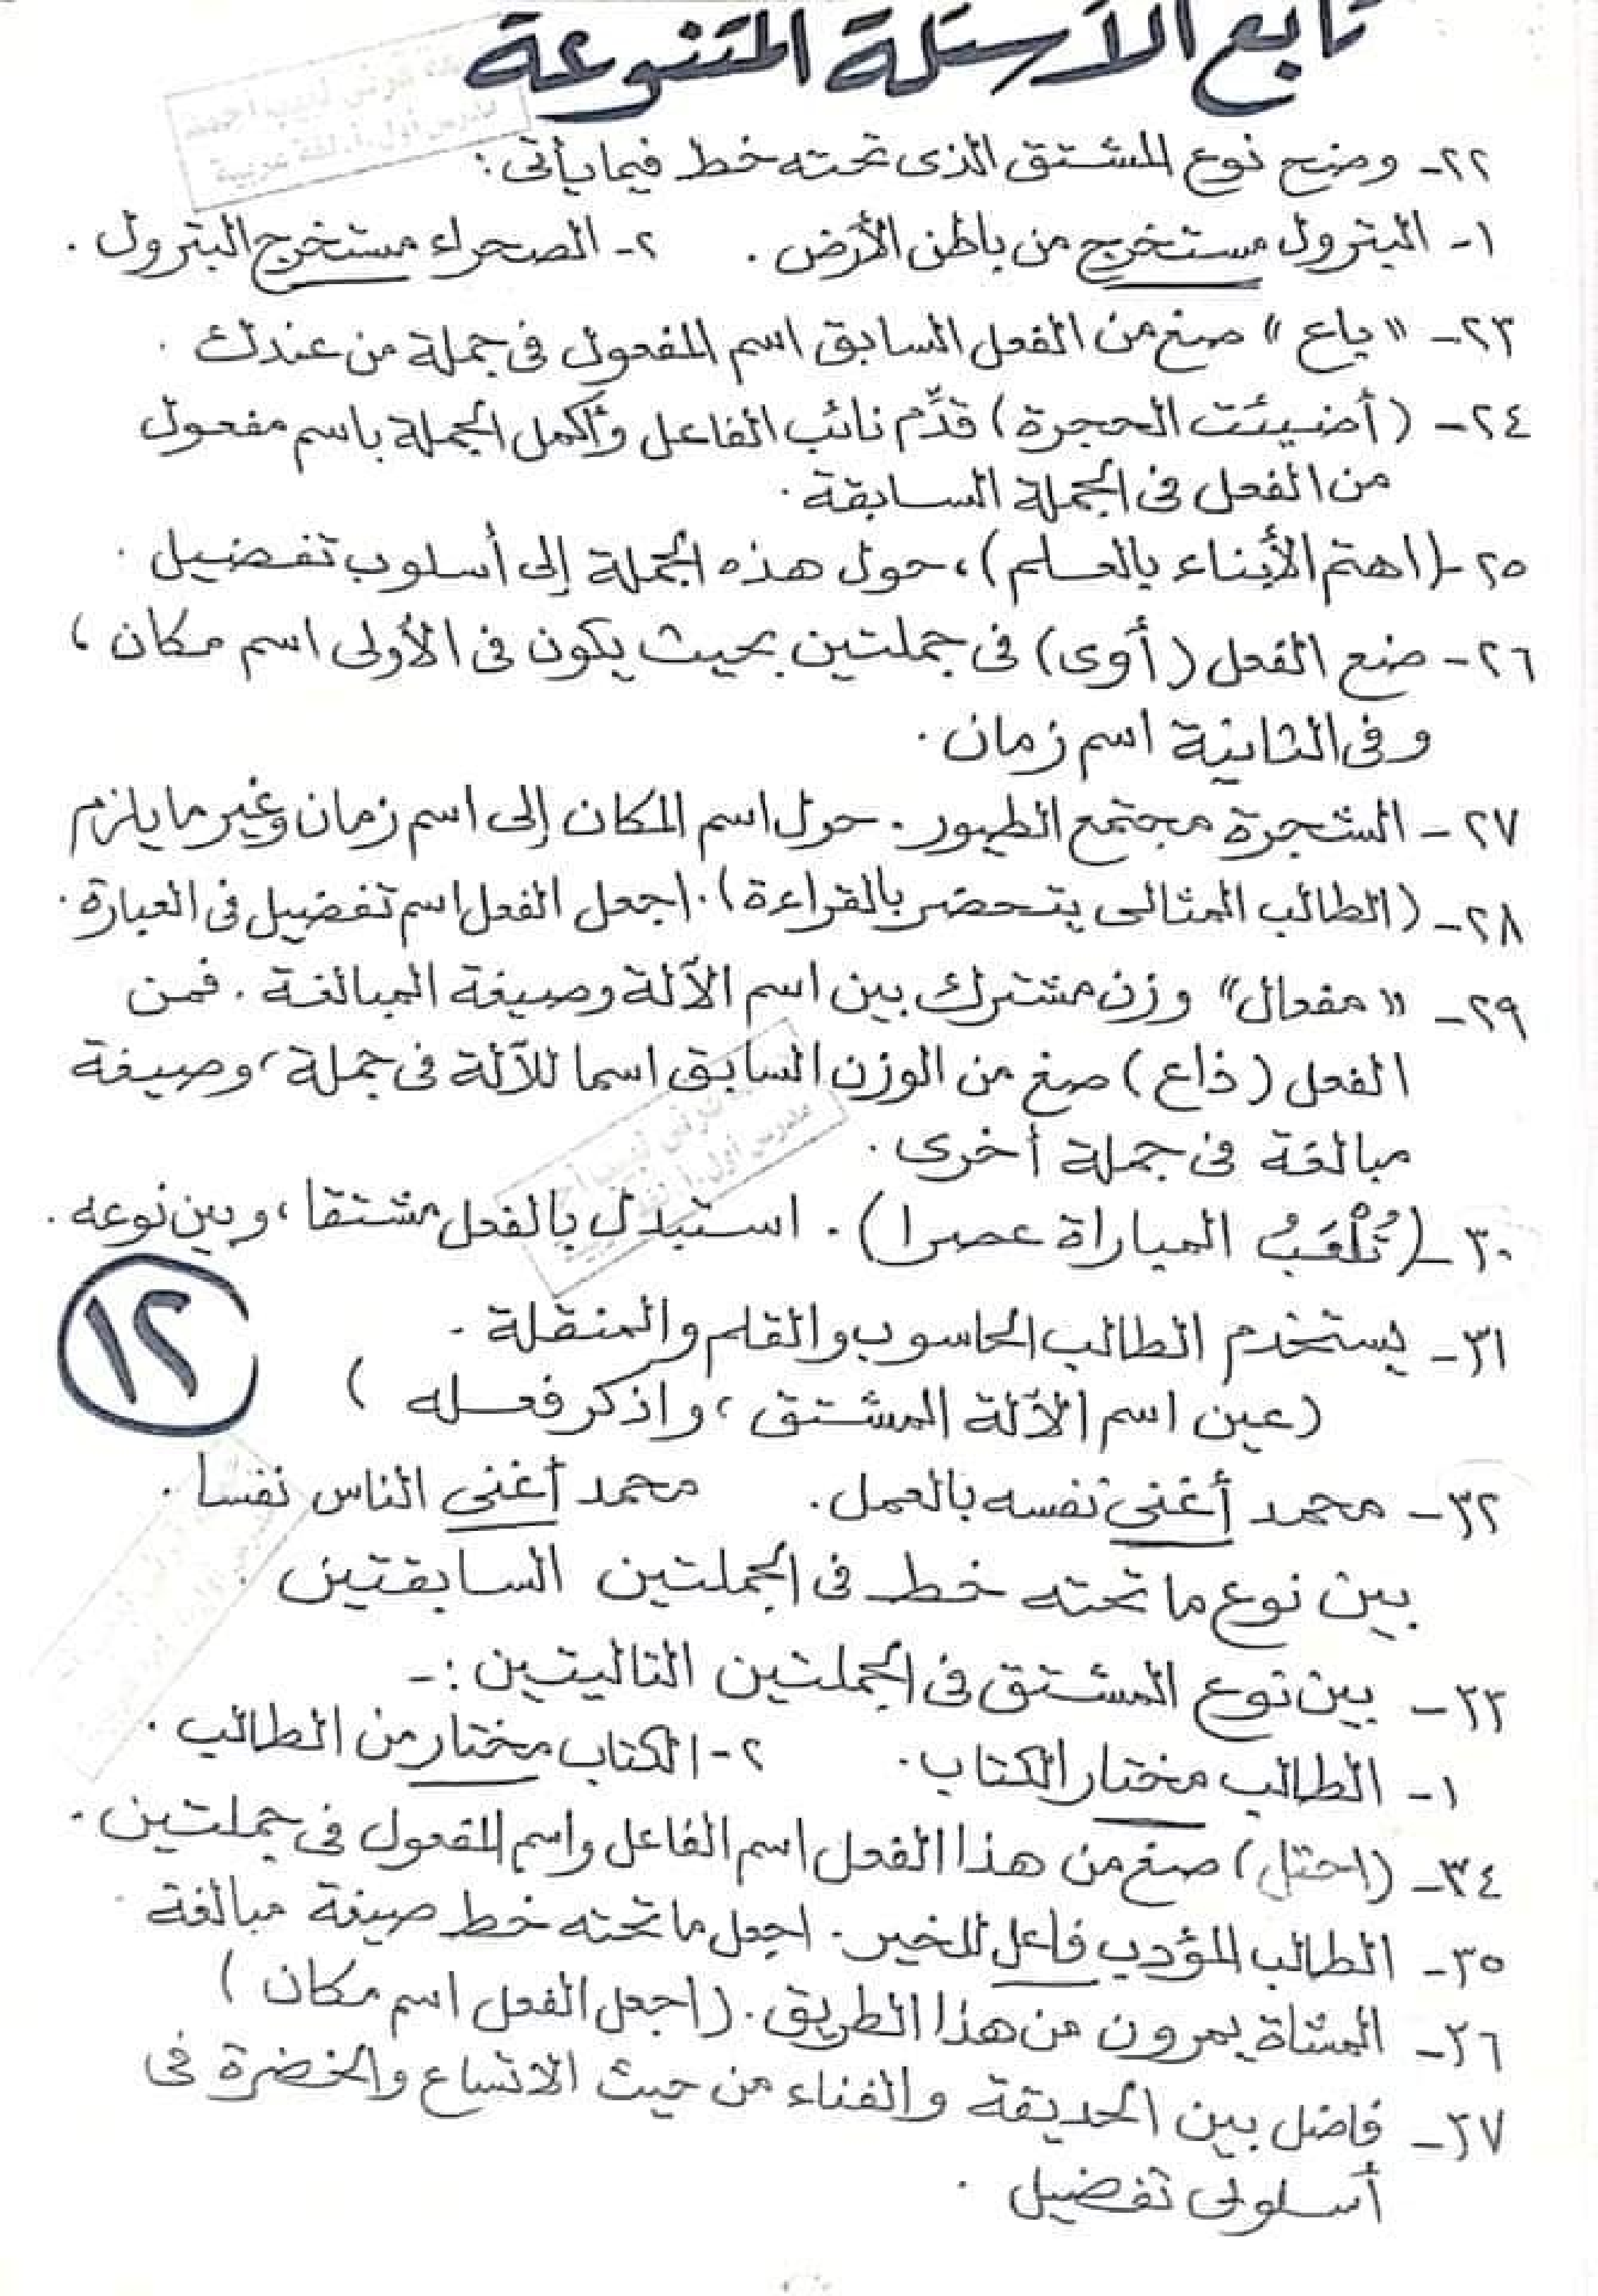 تابع الأسئلة المتنوعة
٢٢- وضح نوع المشتق الذى تحته خط فيما يأتى :
١- البترول مستخرج من باطن الأرض . ٢- الصحراء مستخرج البترول .
٢٣- "باع" صغ من الفعل السابق اسم المفعول فى جملة من عندك .
٢٤- (أضيئت الحجرة) قدِّم نائب الفاعل وأكمل الجملة باسم مفعول
من الفعل فى الجملة السابقة .
٢٥- (اهتم الأبناء بالعلم) ، حول هذه الجملة إلى أسلوب تفضيل .
٢٦- ضع الفعل (أوى) فى جملتين بحيث يكون فى الأولى اسم مكان ،
وفى الثانية اسم زمان .
٢٧- الشجرة مجتمع الطيور . حول اسم المكان إلى اسم زمان وغير ما يلزم
٢٨- (الطالب المثالى يتحضر بالقراءة) . اجعل الفعل اسم تفضيل فى العبارة .
٢٩- "مفعال" وزن مشترك بين اسم الآلة وصيغة المبالغة . فمن
الفعل (ذاع) صغ من الوزن السابق اسما للآلة فى جملة ، وصيغة
مبالغة فى جملة أخرى .
٣٠- (تُلْعَبُ المباراة عصرا) . استبدل بالفعل مشتقا ، وبين نوعه .
١٢
٣١- يستخدم الطالب الحاسوب والقلم والمنقلة .
(عين اسم الآلة المشتق ، واذكر فعله )
٣٢- محمد أغنى نفسه بالعمل . محمد أغنى الناس نفسا .
بين نوع ما تحته خط فى الجملتين السابقتين .
٣٣- بين نوع المشتق فى الجملتين التاليتين :-
١- الطالب مختار الكتاب . ٢- الكتاب مختار من الطالب .
٣٤- (احتل) صغ من هذا الفعل اسم الفاعل واسم المفعول فى جملتين .
٣٥- الطالب المؤدب فاعل للخير . اجعل ما تحته خط صيغة مبالغة .
٣٦- المشاة يمرون من هذا الطريق . (اجعل الفعل اسم مكان )
٣٧- فاضل بين الحديقة والفناء من حيث الاتساع والخضرة فى
أسلوبى تفضيل .